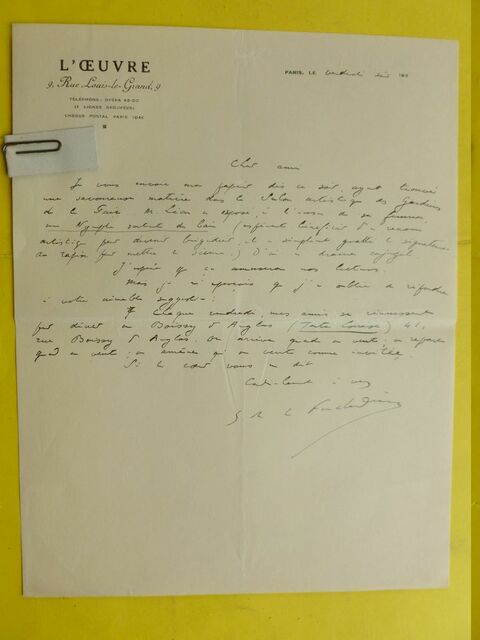 L'ŒUVRE
9, Rue Louis-le-Grand, 9
TÉLÉPHONE: OPÉRA 65-00
(7 LIGNES GROUPÉES)
CHÈQUE POSTAL PARIS 1046
PARIS, LE vendredi soir 193
Cher ami
Je vous envoie mon papier dès ce soir, ayant trouvé
une savoureuse matière dans le Salon artistique des Gardiens
de la Paix. M. a exposé, à l'insu de sa femme,
une Nymphe sortant du bain
artistique pour devant brigadier, il a simplement gratté la signature
du tapin pour mettre la sienne.) D'où drame conjugal
J'espère que ça amusera nos lecteurs
Mais je m'aperçois que j'ai oublié de répondre
à votre aimable suggestion:
Chaque vendredi, mes amis se réunissent
pour dîner au Boissy d'Anglas (Tante Louise) 41,
rue Boissy d'Anglas. On arrive quand on veut, on repart
quand on veut, on amène qui on veut comme invité,
Si le cœur vous en dit
Cordialement à vous